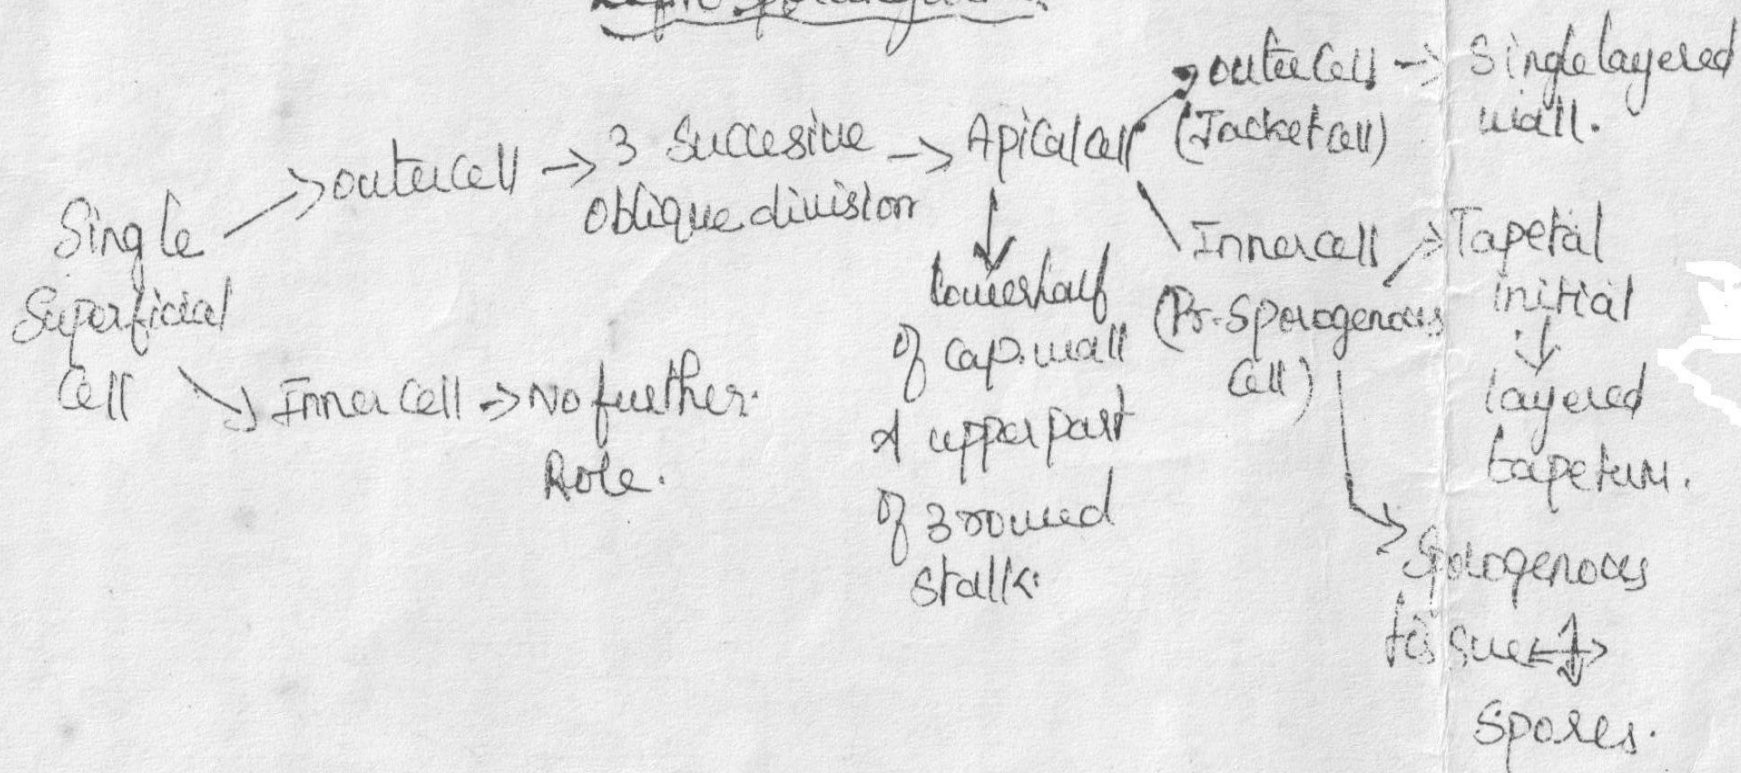 Single
Superficial
Cell
→ outercell → 3 Succesive
oblique division
→ Apical cell
→ outer Cell → Single layered
(Jacket cell) wall.
↓
lowerhalf
of cap. wall
& upper part
of 3 rowed
stalk.
Inner cell
(Pr. Sporogenous
Cell)
→ Tapetal
initial
↓
layered
tapetum.
→ Sporogenous
tissue
Spores.
→ Inner Cell → No further
Role.